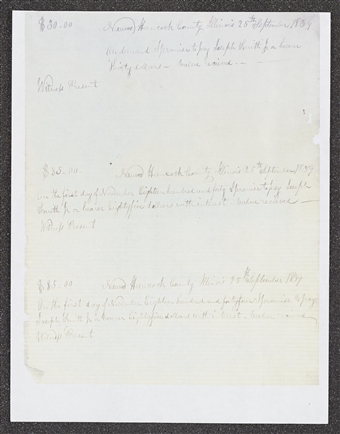 $30.00 Nauvoo Hancock County Illinois 25th September 1839
on demand I promise to pay Joseph Smith Jr or bearer
thirty dollars — value received —
Witness Present
$85.00 Nauvoo Hancock County Illinois 25th September 1839
on the first day of November Eighteen hundred and I promise to pay Joseph
Smith Jr or bearer Eighty five dollars with interest value received —
Witness Present
$85.00 Nauvoo Hancock County Illinois September 1839
On the first day of November Eighteen hundred and I promise to pay
Joseph Smith Jr or bearer Eighty five dollars with interest —
Witness Present